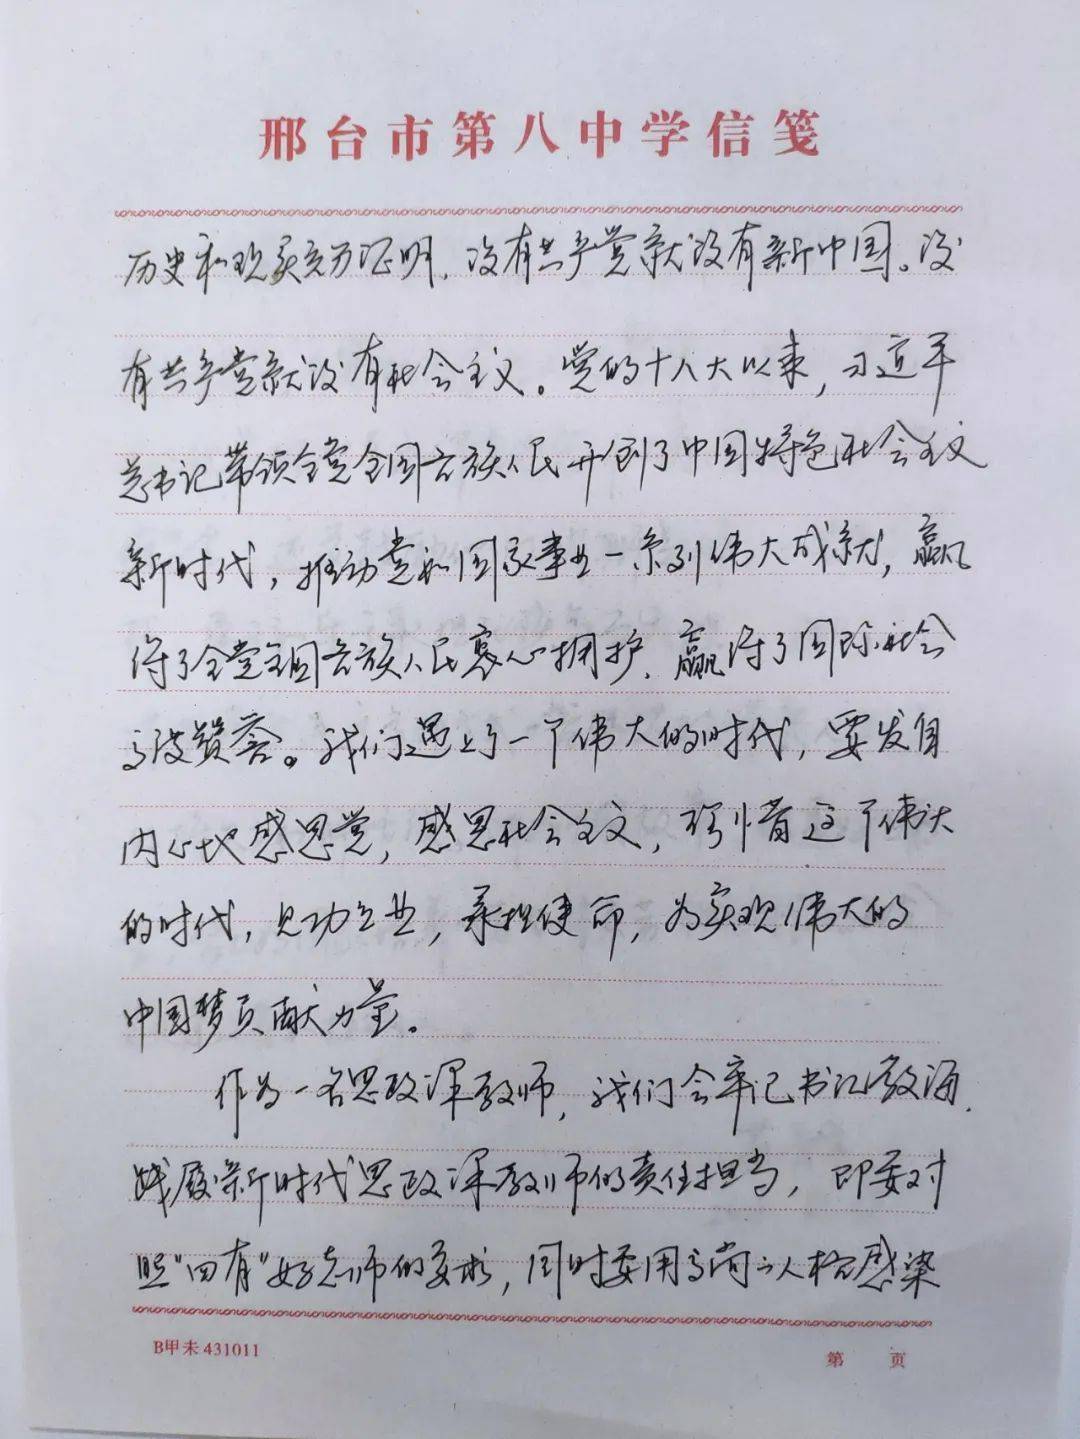 邢台市第八中学信笺
历史和现实充分证明,没有共产党就没有新中国。没
有共产党就没有社会主义。党的十八大以来,习近平
总书记带领全党全国各族人民开创了中国特色社会主义
新时代,推动党和国家事业一系列伟大成就,赢
得了全党全国各族人民衷心拥护,赢得了国际社会
高度赞誉。我们遇上了一个伟大的时代,要发自
内心地感恩党,感恩社会主义,珍惜这个伟大
的时代,见功立业,承担使命,为实现伟大的
中国梦贡献力量。
作为一名思政课教师,我们会牢记书记教诲,
践履新时代思政课教师的责任担当,即要对
照"四有"好老师的要求,同时要用高尚的人格感染
B甲未431011
第 页